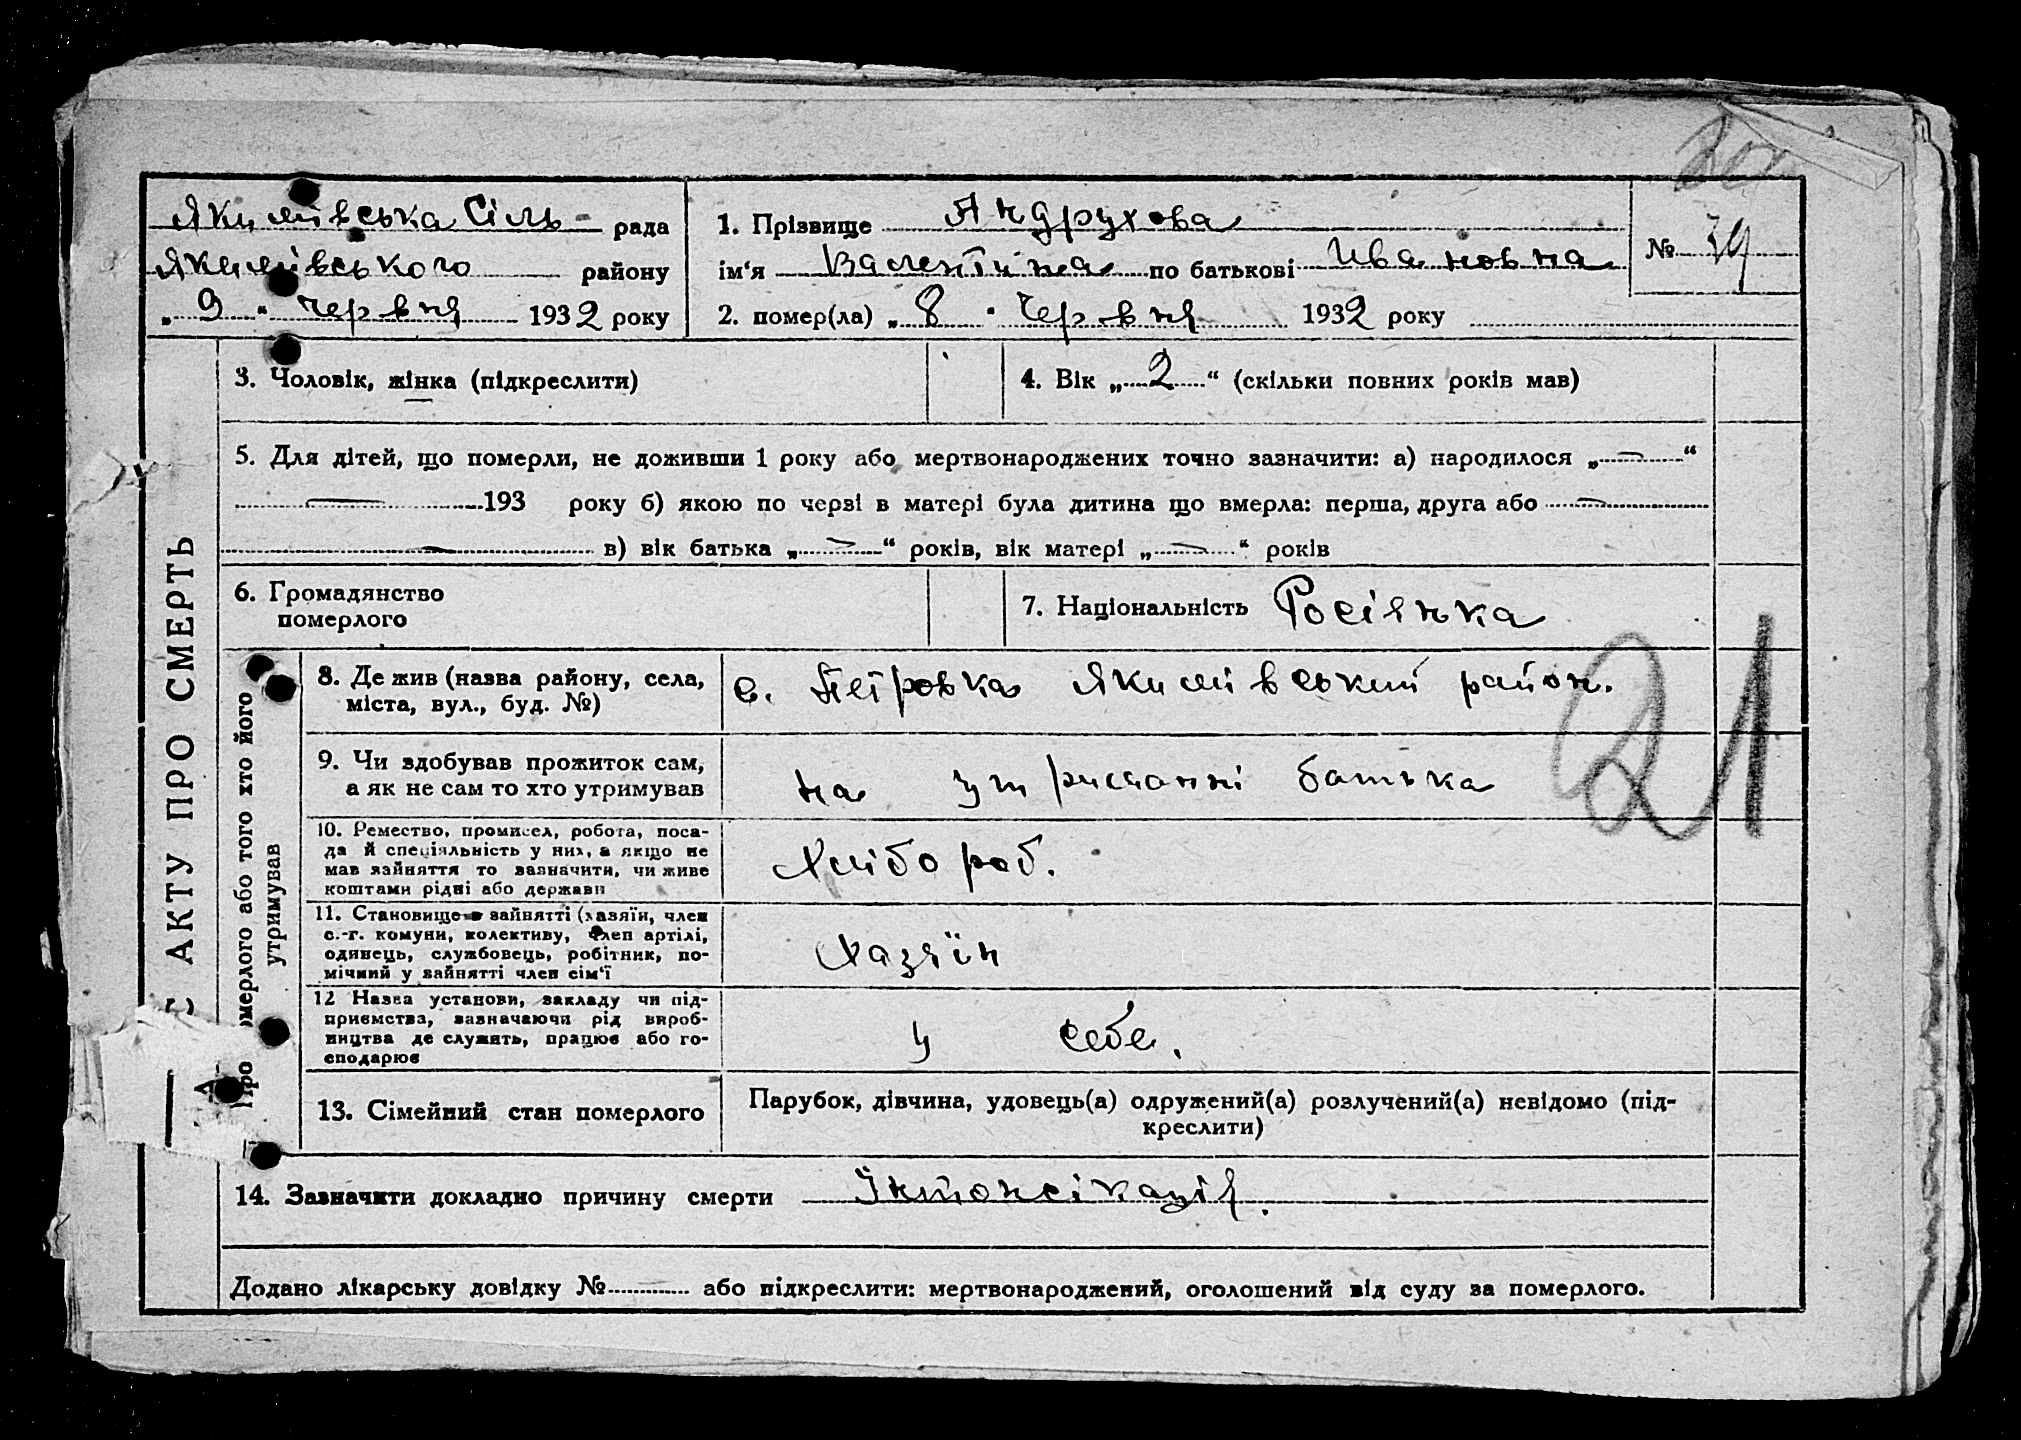 Якимівська Сіль- рада
Якимівського району
„ 9 “ Червня 1932 року
1. Прізвище Андрухова
ім‘я Валентина по батькові Ивановна
№ 39
2. помер(ла) „ 8 “ Червня 1932 року
С АКТУ ПРО СМЕРТЬ
3. Чоловік, жінка (підкреслити)
4. Вік „ 2 “ (скільки повних років мав)
5. Для дітей, що померли, не доживши 1 року або мертвонароджених точно зазначити: а) народилося „ — “
— 193 року б) якою по черзі в матері була дитина що вмерла: перша, друга або —
— в) вік батька „ — “ років, вік матері „ — “ років
6. Громадянство
померлого
7. Національність Росіянка
Про померлого або того хто його
утримував
8. Де жив (назва району, села,
міста, вул., буд. №)
с. Петровка Якимівський район.
9. Чи здобував прожиток сам,
а як не сам то хто утримував
на утриманні батька
10. Ремество, промисел, робота, поса-
да й спеціяльність у них, а якщо не
мав зайняття то зазначити, чи живе
коштами рідні або держави
Хлібороб.
11. Становище в зайнятті (хазяїн, член
с.-г. комуни, колективу, член артілі,
одинець, службовець, робітник, по-
мічний у зайнятті член сім‘ї
Хазяїн
12 Назва установи, закладу чи під-
приємства, зазначаючи рід вироб-
ництва де служать, працює або го-
сподарює
у себе.
13. Сімейний стан померлого
Парубок, дівчина, удовець(а) одружений(а) розлучений(а) невідомо (під-
креслити)
21
14. Зазначити докладно причину смерти Інтонсікація.
Додано лікарську довідку № або підкреслити: мертвонароджений, оголошений від суду за померлого.